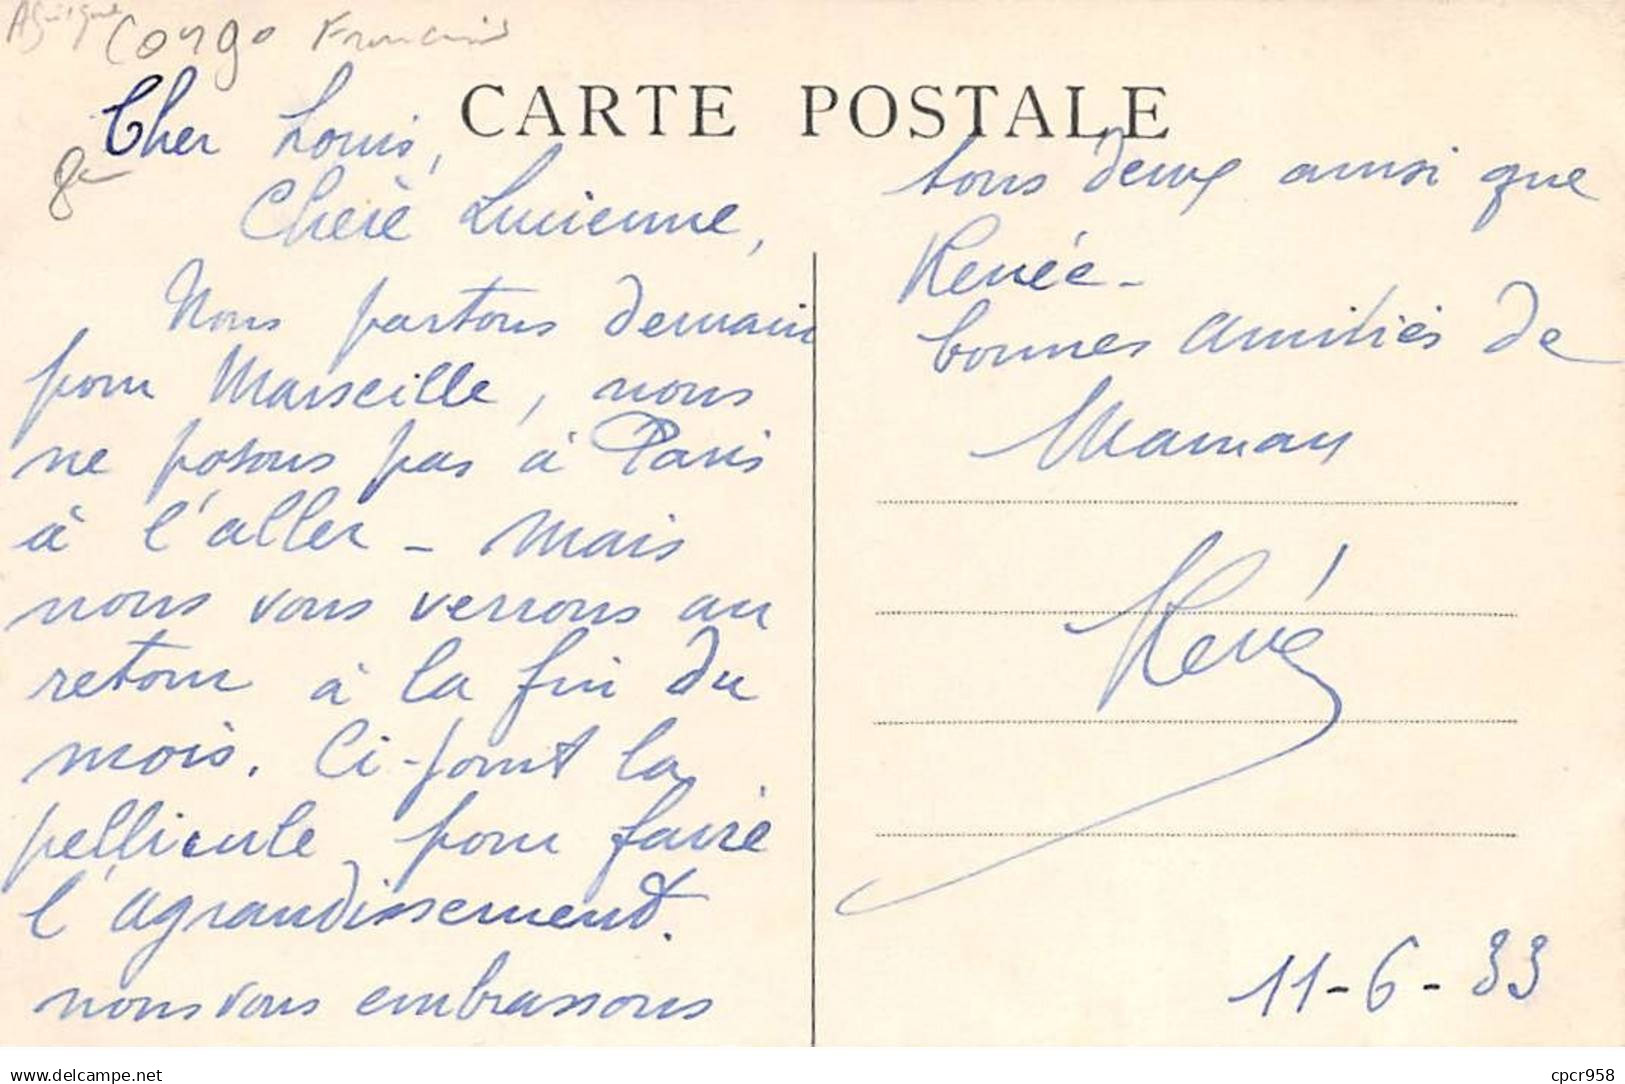 Afrique Congo Français
CARTE POSTALE
Cher Louis,
8-
Chère Lucienne,
Nous partons demain
pour Marseille, nous
ne posons pas à Paris
à l'aller - mais
nous vous verrons au
retour à la fin du
mois. Ci-joint la
pellicule pour faire
l'agrandissement.
nous vous embrassons
tous deux ainsi que
Renée -
bonnes amitiés de
Maman
René
11-6-33
delcampe.net
cpcr958